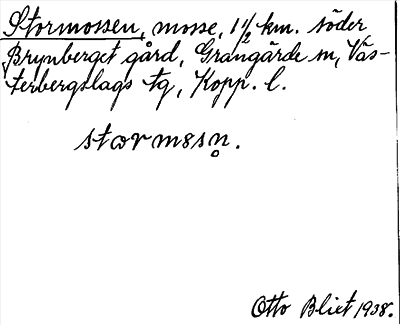 Stormossen, mosse, 1 1/2 km. söder
Brynberget gård, Grangärde sn, Väs-
terbergslags tg, Kopp. l.
stormɷsn̥.
Otto Blixt 1938.